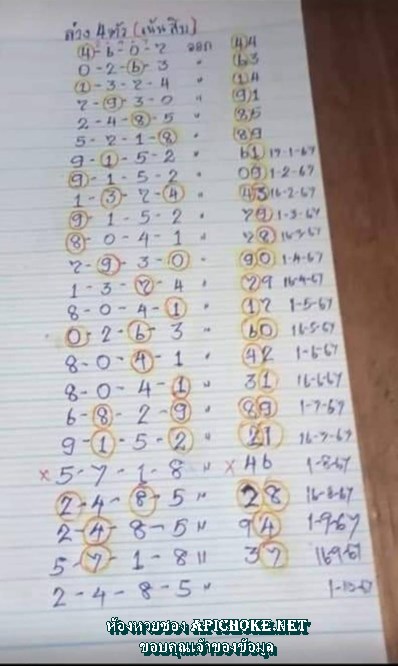 ล่าง 4 ตัว (เน้นสิบ)
4-6-0-7 ออก 44
0-2-6-3 " 63
1-3-7-4 " 14
7-9-3-0 " 91
2-4-8-5 " 85
5-7-1-8 " 89
9-1-5-2 " 61 17-1-67
9-1-5-2 " 09 1-2-67
1-3-7-4 " 43 16-2-67
9-1-5-2 " 79 1-3-67
8-0-4-1 " 78 16-3-67
7-9-3-0 " 90 1-4-67
1-3-7-4 " 79 16-4-67
8-0-4-1 " 17 1-5-67
0-2-6-3 " 60 16-5-67
8-0-4-1 " 42 1-6-67
8-0-4-1 " 31 16-6-67
6-8-2-9 " 89 1-7-67
9-1-5-2 " 21 16-7-67
×5-7-1-8 " ×46 1-8-67
2-4-8-5 " 28 16-8-67
2-4-8-5 " 94 1-9-67
5-7-1-8 " 37 16-9-67
2-4-8-5 " 1-10-67
ห้องหวยซอง APICHOKE.NET
ขอบคุณเจ้าของข้อมูล